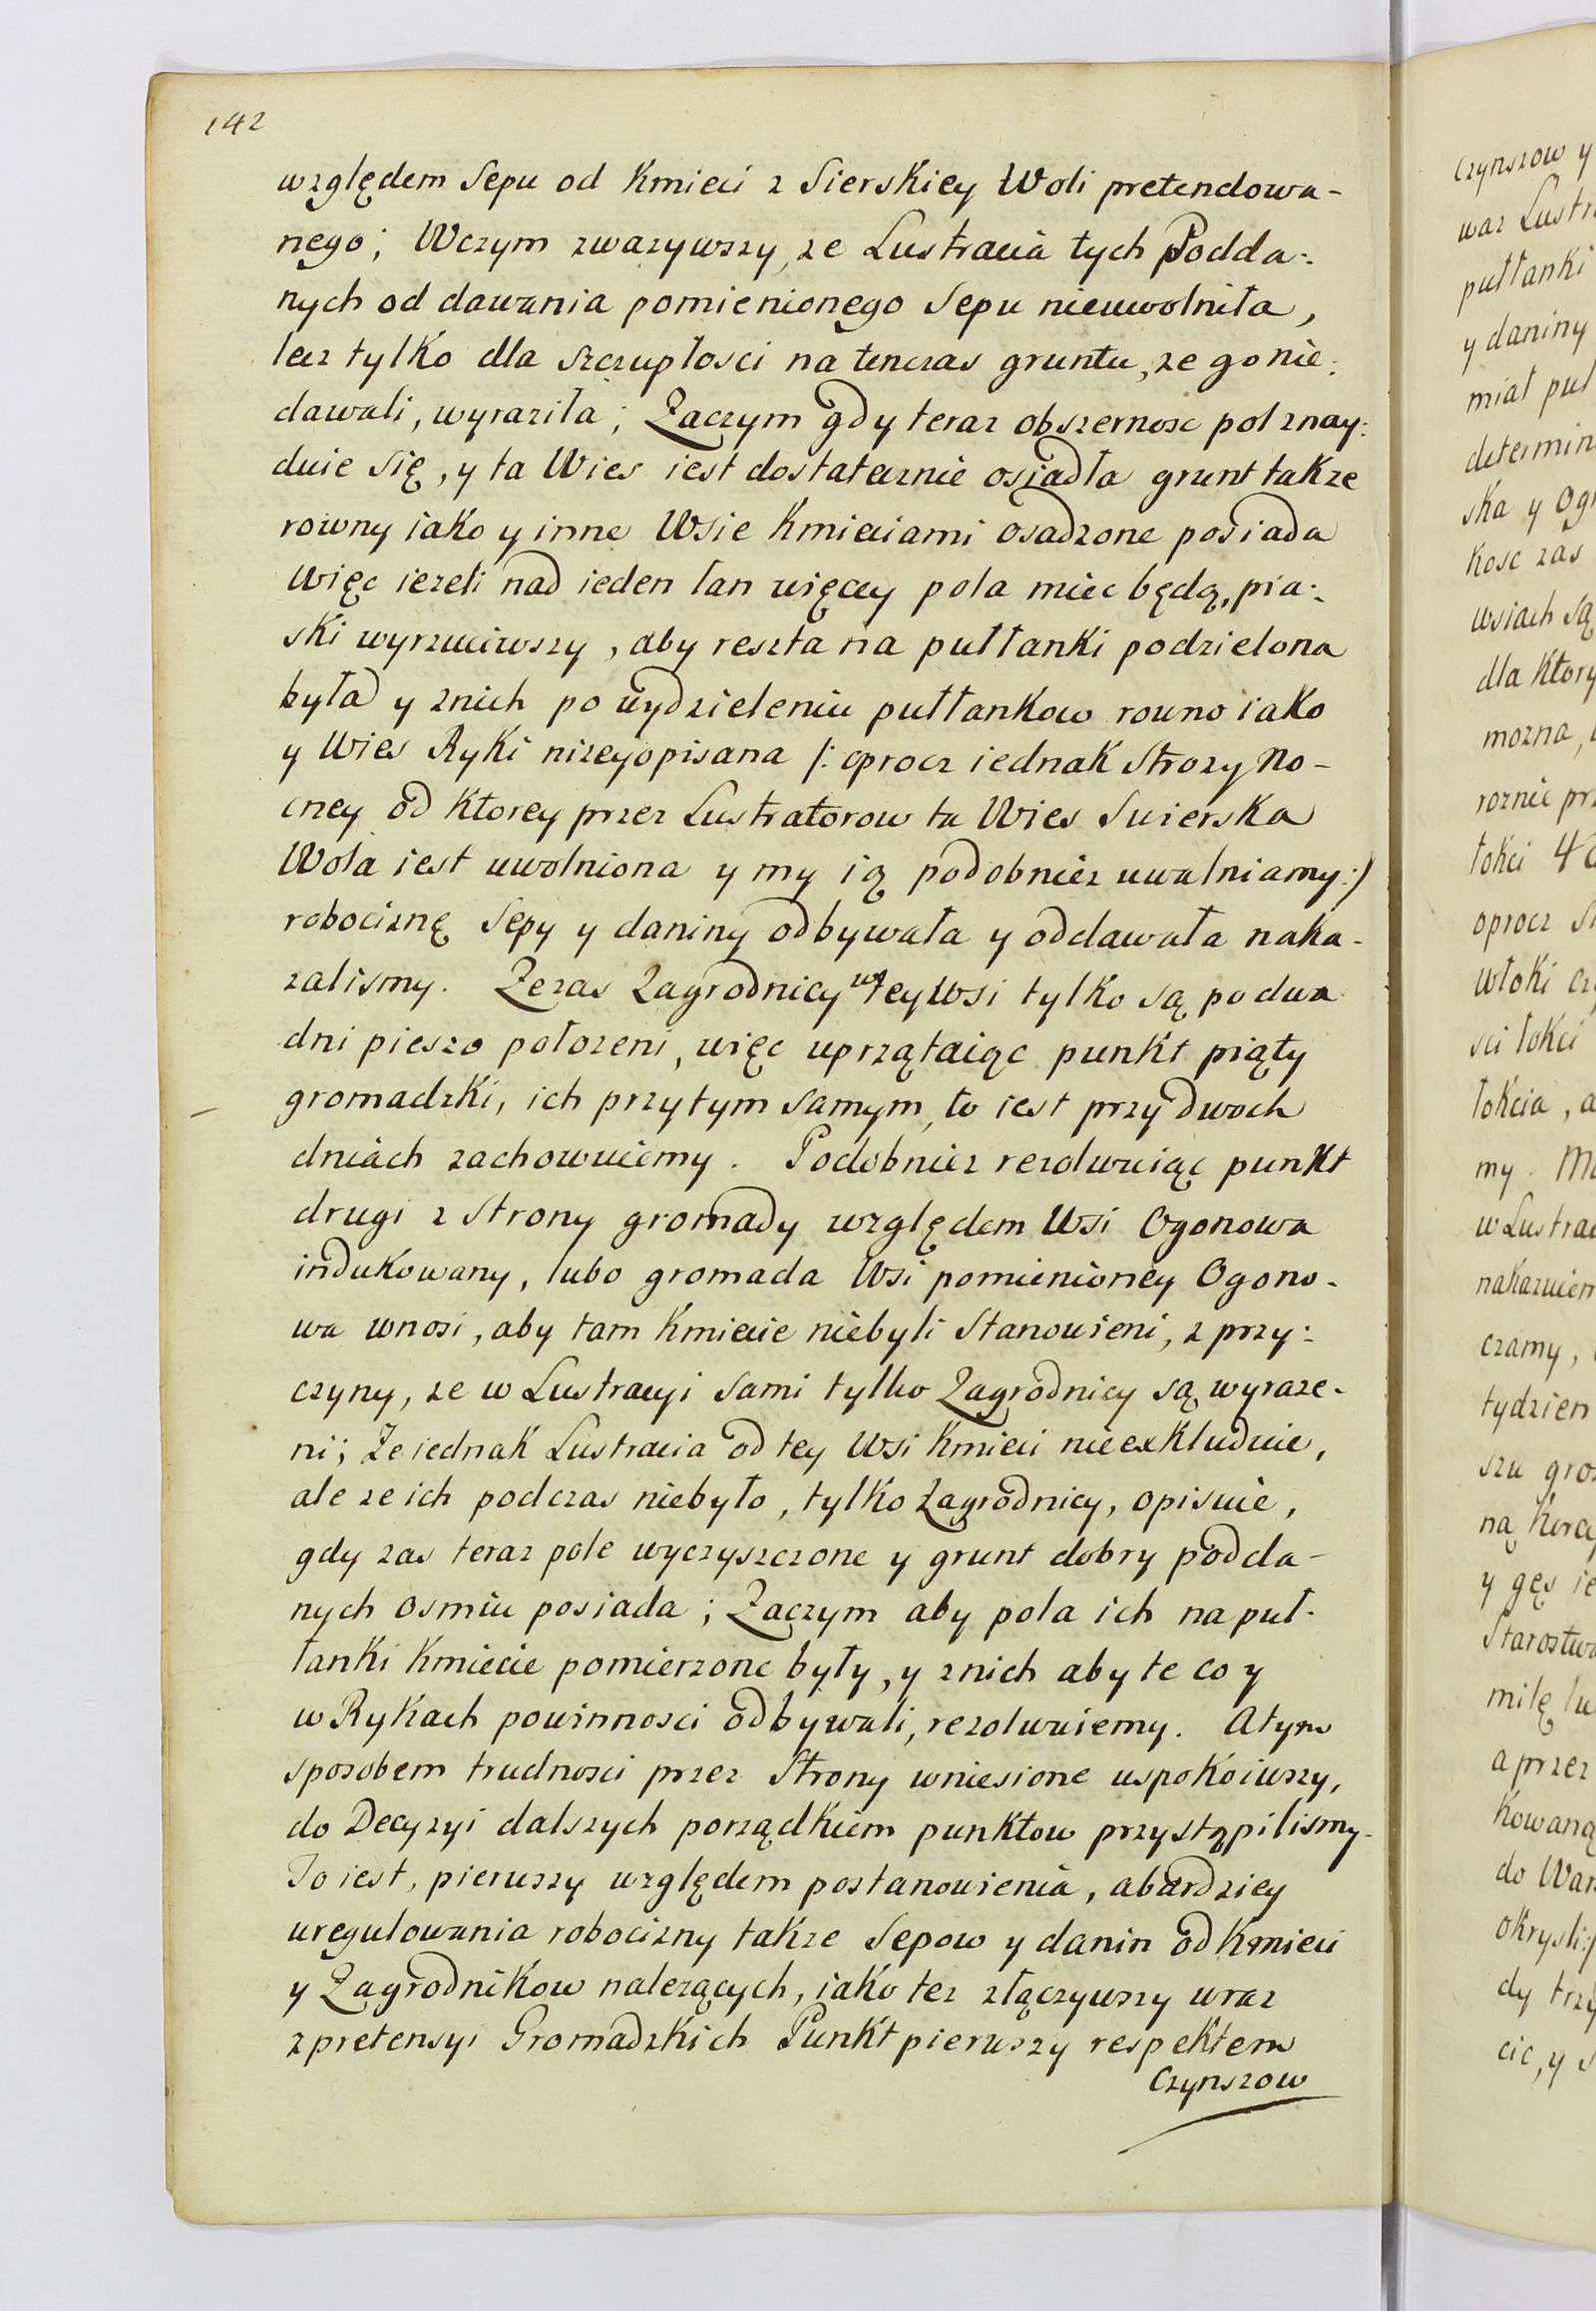 142
względem Sepu od Kmieci z Sierskiey Woli pretendowa-
nego; Wczym zwazywszy, ze Lustracia tych Podda-
nych od dawania pomienionego Sepu nieuwolniła,
lecz tylko dla szczupłosci na tenczas gruntu, ze go nie-
dawali, wyraziła; Zaczym gdy teraz obszernosc pol znay-
duie się, y ta Wies iest dostatecznie osiadła grunt takze
rowny iako y inne Wsie Kmieciami osadzone posiada
Więc iezeli nad ieden łan więcey pola miec będą, pia-
ski wyrzuciwszy, aby reszta na pułłanki podzielona
była y znich po wydzieleniu pułłankow rowno iako
y Wies Ryki nizeyopisana /: oprocz iednak Strozy No-
cney od Ktorey przez Lustratorow ta Wies Swierska
Wola iest uwolniona y my ią podobniez uwalniamy :/
robociznę Sepy y daniny odbywała y oddawała naka-
zalismy. Ze zas Zagrodnicy w tey Wsi tylko są po dwa
dni pieszo połozeni, więc uprzątaiąc punkt piąty
gromadzki, ich przytym samym, to iest przy dwoch
dniach zachowuiemy. Podobniez rezolwuiąc punkt
drugi z Strony gromady względem Wsi Ogonowa
indukowany, lubo gromada Wsi pomienioney Ogono-
wa wnosi, aby tam Kmiecie niebyli Stanowieni, z przy-
czyny, ze w Lustracyi sami tylko Zagrodnicy są wyraze-
ni; Ze iednak Lustracia od tey Wsi Kmieci nieexkluduie,
ale ze ich podczas niebyło, tylko Zagrodnicy, opisuie,
gdy zas teraz pole wyczyszczone y grunt dobry podda-
nych osmiu posiada; Zaczym aby pola ich na puł-
łanki Kmiecie pomierzone były, y znich aby te co y
w Rykach powinnosci odbywali, rezolwuiemy. Atym
sposobem trudnosci przez Strony wniesione uspokoiwszy,
do Decyzyi dalszych porządkiem punktow przystąpilismy.
To iest, pierwszy względem postanowienia, abardziey
uregulowania robocizny takze Sepow y danin od Kmieci
y Zagrodnikow nalezących, iako tez złączywszy wraz
z pretensyi Gromadzkich Punkt pierwszy respektem
Czynszow
Czynszow y
waz Lustr
pułłanki
y daniny
miał puł
determin
ska y Ogr
Kosc zas
wsiach są
dla Ktory
mozna,
roznie prz
łokci
oprocz
włoki
sci łokci
łokcia, a
my.
w Lustrac
nakazuiem
czamy,
tydzien
szu gros
ną Korcy
y gęs ie
Starostwa
milę lu
a przez
Kowaną
do War
okrysli:
dy trzy
cic, y